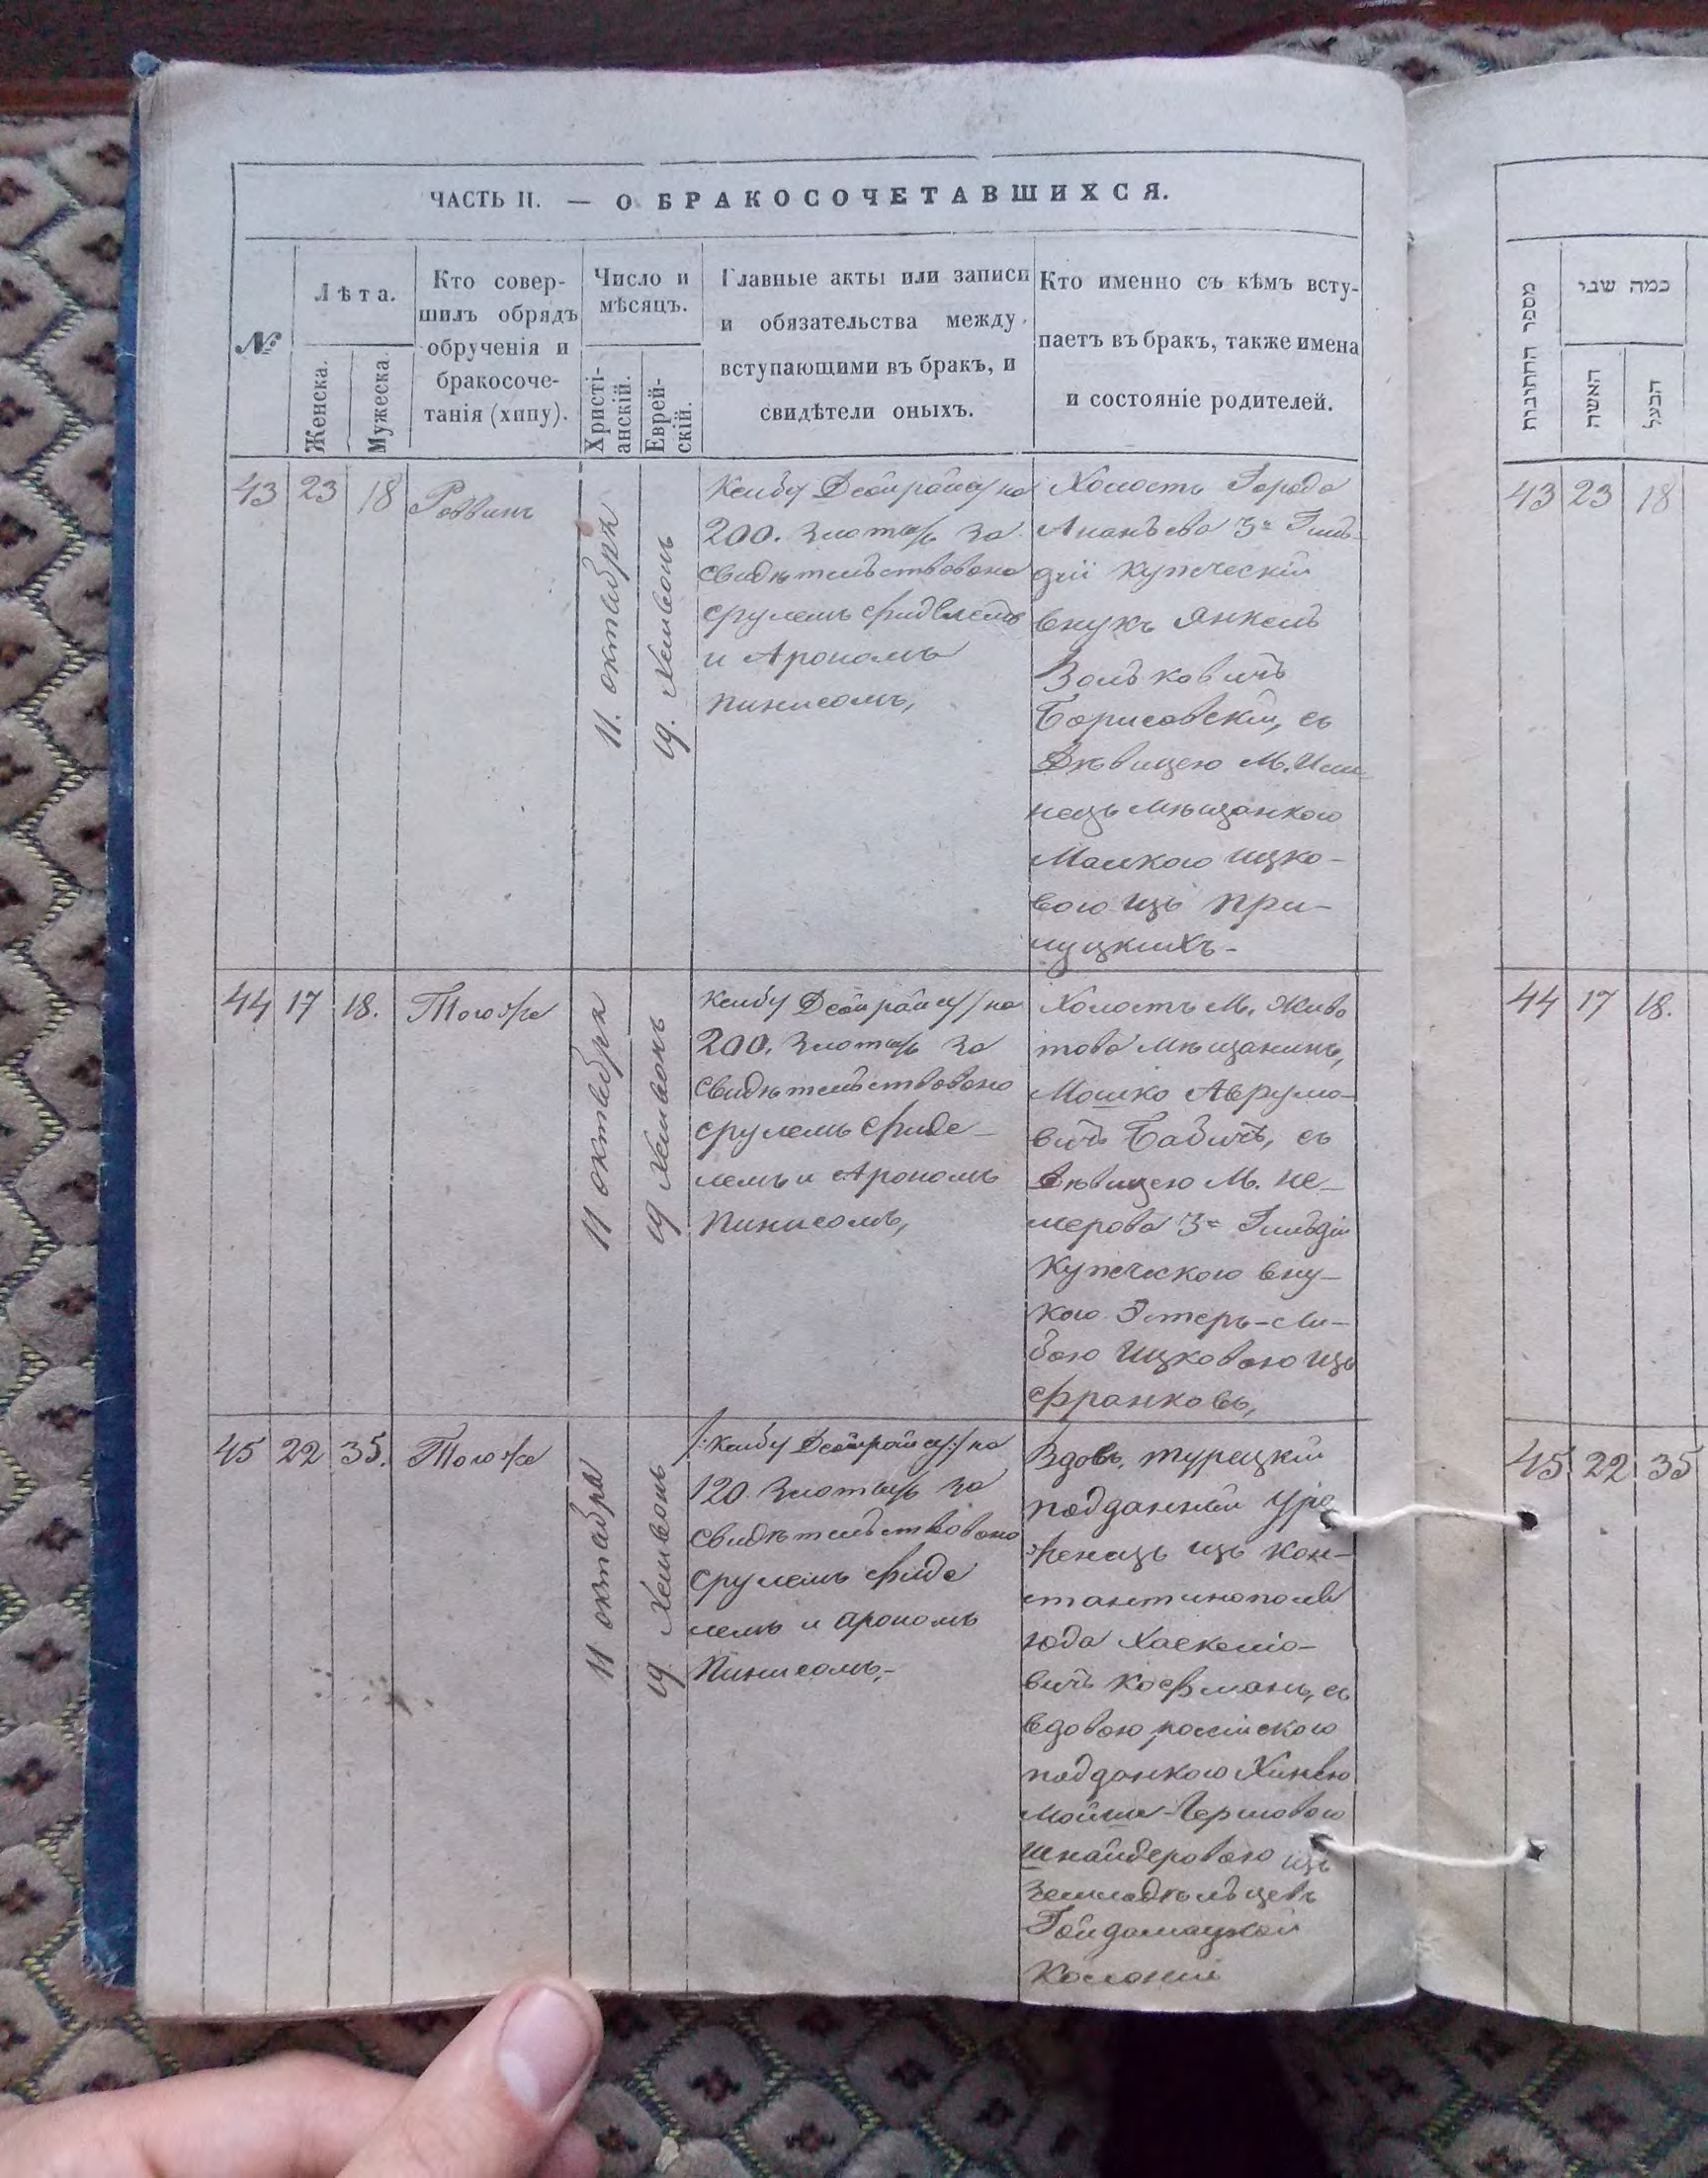 ЧАСТЬ II. — О БРАКОСОЧЕТАВШИХСЯ.
№
Лѣта.
Женска.
Мужеска.
Кто совер-
шилъ обрядъ
обрученія и
бракосоче-
танія (хипу).
Число и
мѣсяцъ.
Христі-
анскій.
Еврей-
скій.
Главные акты или записи
и обязательства между
вступающими въ брак, и
свидѣтели оныхъ.
Кто именно съ кѣмъ всту-
паетъ въ бракъ, также имена
и состояніе родителей.
43 23 18
Раввинъ
11. октября
19. Хешвонъ
на
200. злотыхъ за
свидѣтельствовано
срулемъ
и Арономъ
пинисомъ,
Холостъ Города
Ананьева 3й Гиль-
діи купеческій
внукъ Янкель
Волькович
Борисовскій, съ
Дѣвицею М.
нецъ мѣщанкою
Малкою ицко-
вою изъ при-
луцкихъ-
44 17 18.
Тогоже
11 октября
19 Хешвонъ
на
200. злотыхъ за
свидѣтельствовано
срулемъ фиде-
лемъ и Арономъ
Пинисомъ,
Холостъ М. Живо
това мѣщанинъ,
Мошко Аврумо-
вичъ Бабичъ, съ
Дѣвицею М. не-
мерова 3й Гильдіи
Купеческою вну-
кою Этеръ-Ли-
бою ицковою изъ
франковъ,
45 22 35.
Тогоже
11 октября
19 Хешвонъ
на
120 злотыхъ за
свидѣтельствовано
срулемъ фиде
лемъ и арономъ
Пинисомъ,-
Вдовъ, турецкій
подданный уро
женецъ изъ кон-
стантинополя
юда Хаскеліо-
вичъ Кофманъ, съ
вдовою россійскою
подданкою
Мойше-Гершовою
шнайдеровою изъ
земледѣльцевъ
Гайдамацкой
Колоніи
מספר החתונות
כמה שני
האשה
הבעל
43 23 18
44 17 18.
45 22 35